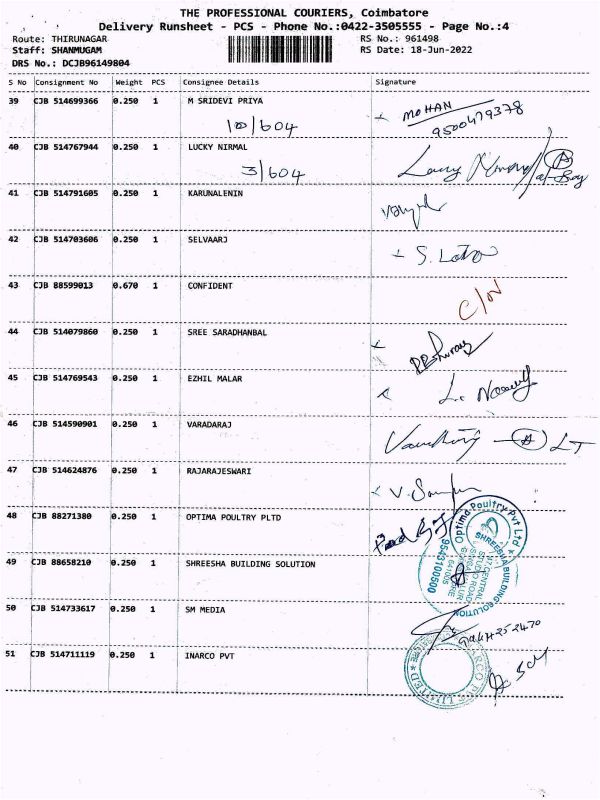 THE PROFESSIONAL COURIERS, Coimbatore
Delivery Runsheet - PCS - Phone No.:0422-3505555 - Page No.:4
Route: THIRUNAGAR RS No.: 961498
Staff: SHANMUGAM RS Date: 18-Jun-2022
DRS No.: DCJB96149804
S No Consignment No Weight PCS Consignee Details Signature
39 CJB 514699366 0.250 1 M SRIDEVI PRIYA MOHAN
10/604 9500479378
40 CJB 514767944 0.250 1 LUCKY NIRMAL
3/604
41 CJB 514791605 0.250 1 KARUNALENIN
42 CJB 514703606 0.250 1 SELVAARJ S. Latha
43 CJB 88599013 0.670 1 CONFIDENT C/N
44 CJB 514079860 0.250 1 SREE SARADHANBAL
45 CJB 514769543 0.250 1 EZHIL MALAR
46 CJB 514590901 0.250 1 VARADARAJ
47 CJB 514624876 0.250 1 RAJARAJESWARI
48 CJB 88271380 0.250 1 OPTIMA POULTRY PLTD
Optima Poultry Pvt Ltd
49 CJB 88658210 0.250 1 SHREESHA BUILDING SOLUTION
SHREESHA BUILDING SOLUTION
9543100500
50 CJB 514733617 0.250 1 SM MEDIA
51 CJB 514711119 0.250 1 INARCO PVT